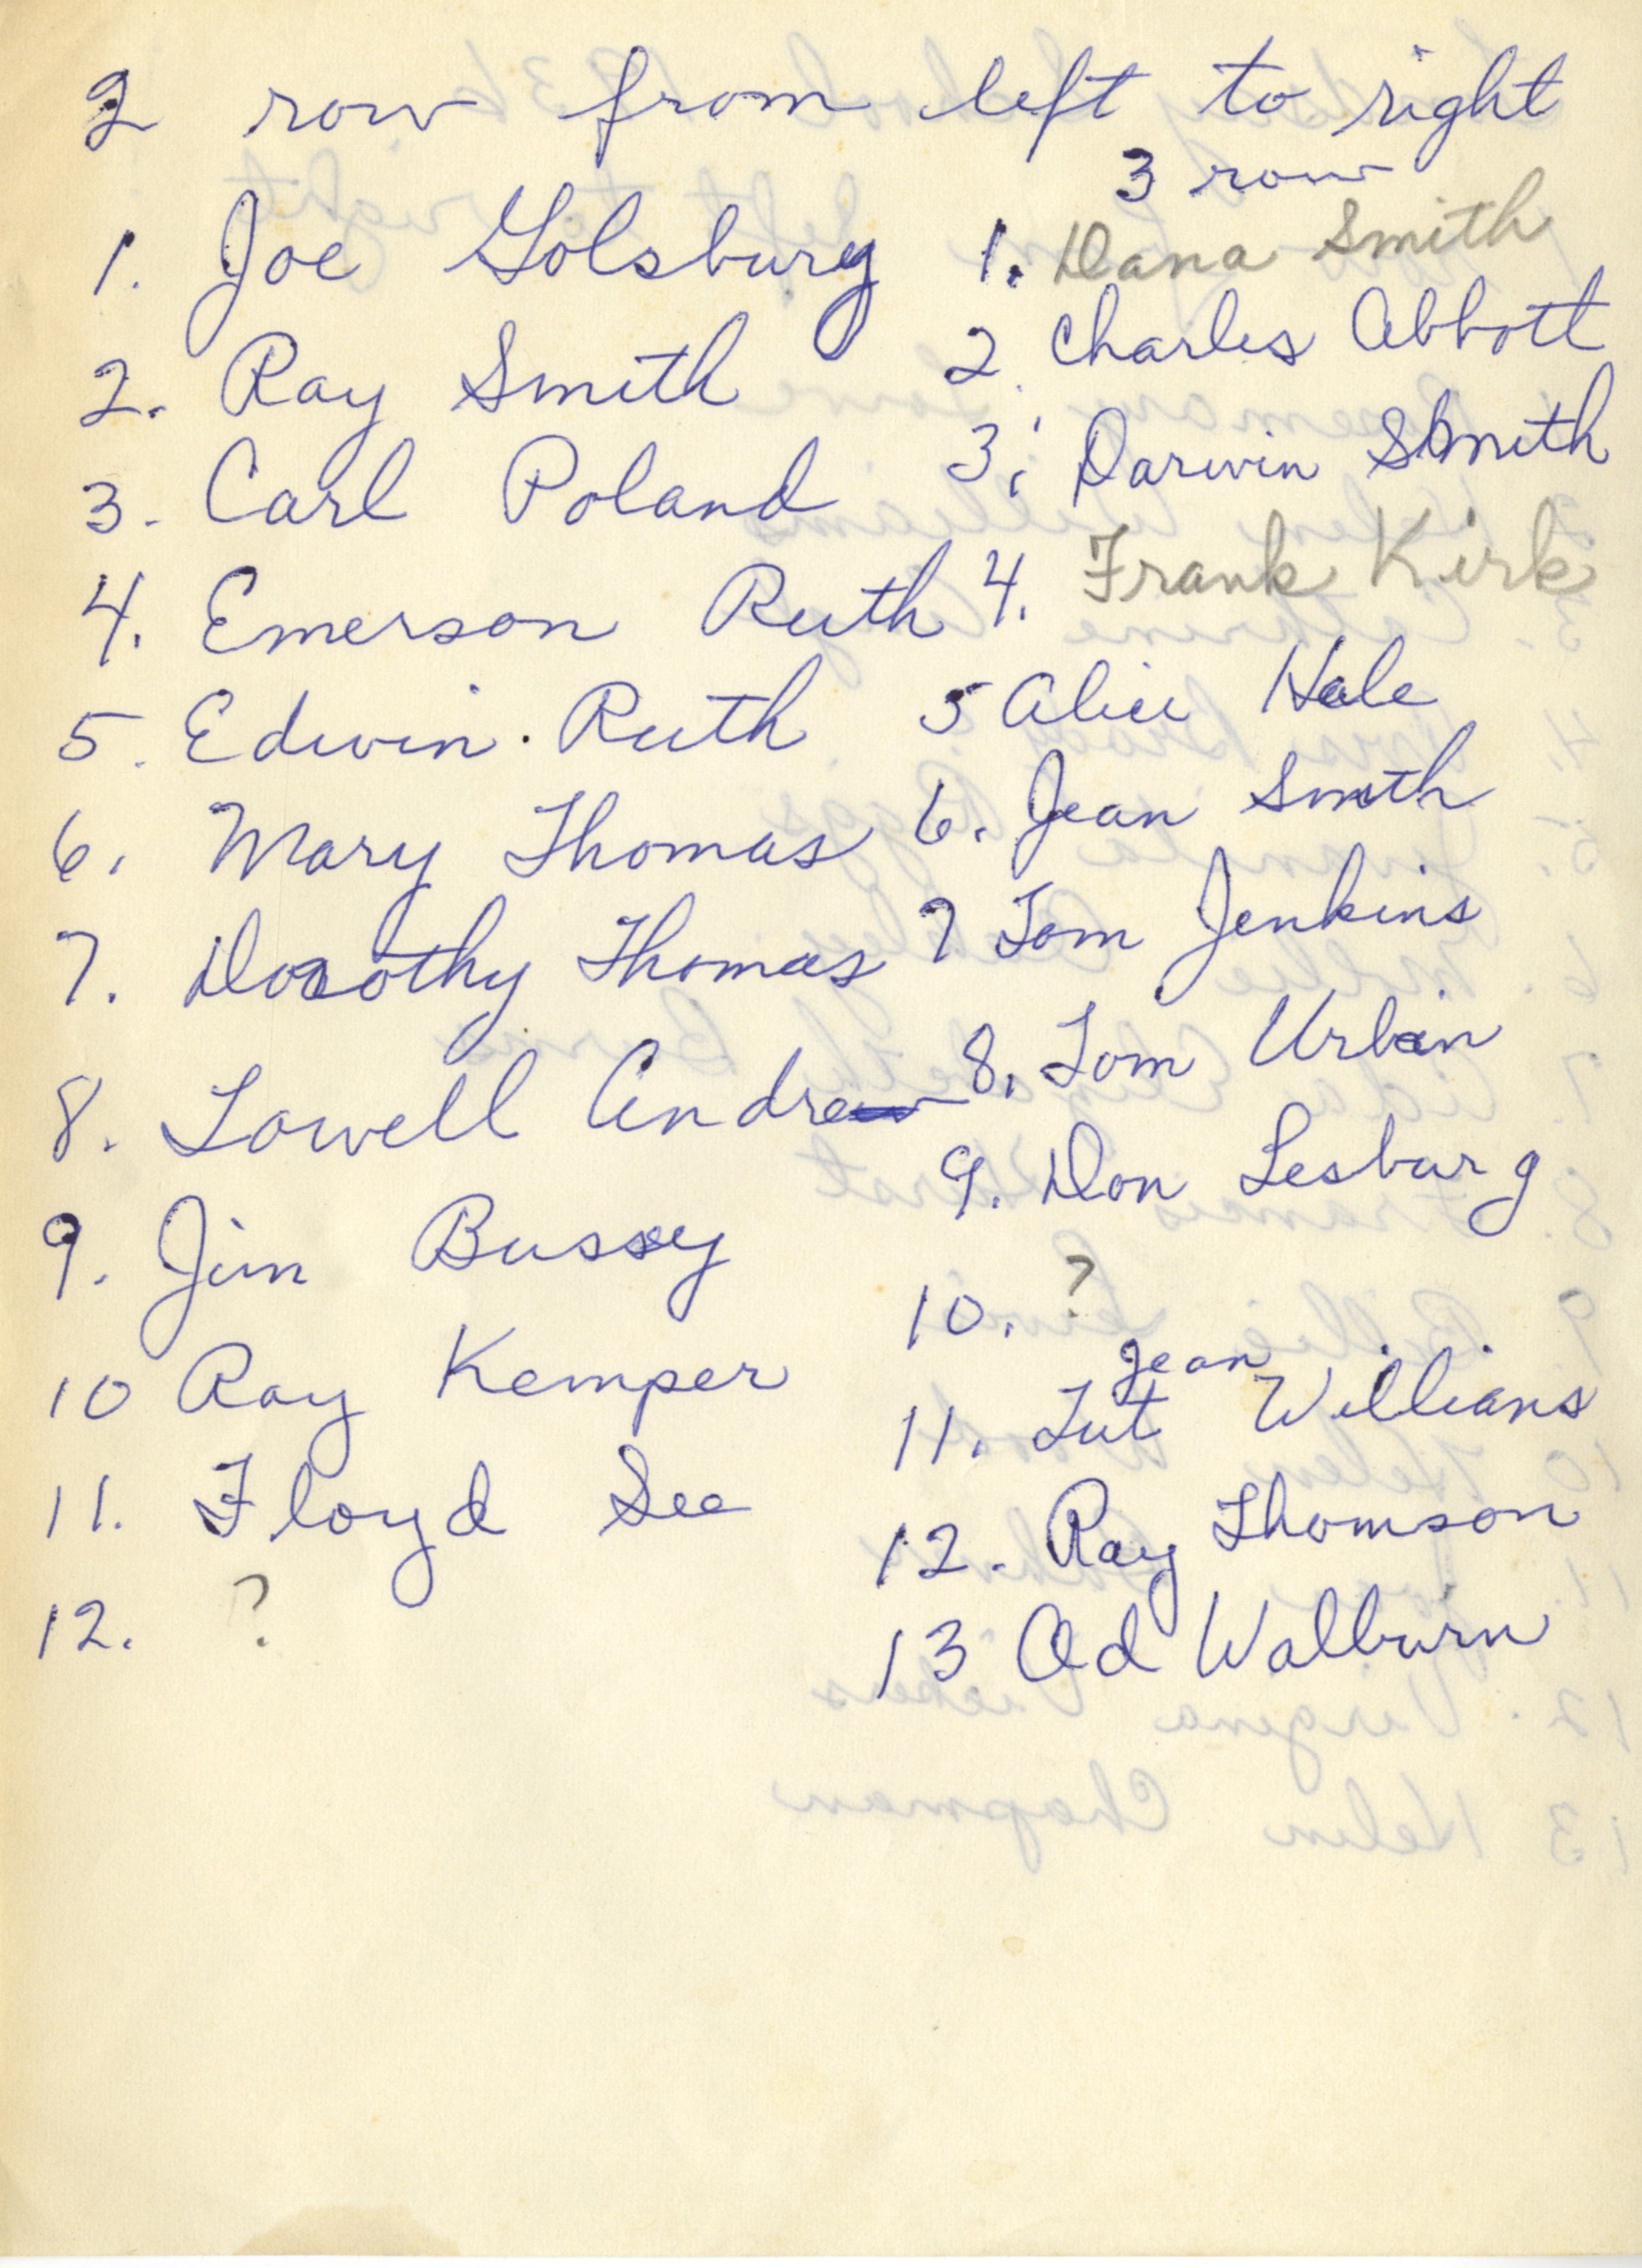 2 row from left to right
1. Joe Golsbury
2. Ray Smith
3. Carl Poland
4. Emerson Ruth
5. Edwin Ruth
6. Mary Thomas
7. Dorothy Thomas
8. Lowell Andrew
9. Jim Bussey
10 Ray Kemper
11. Floyd See
12. ?
3 row
1. Dana Smith
2. Charles Abbott
3. Darwin Smith
4. Frank Kirk
5 Alice Hale
6. Jean Smith
7 Tom Jenkins
8. Tom Urban
9. Don Lesburg
10. ?
Jean
11. Tut Williams
12. Ray Thomson
13 Od Walburn